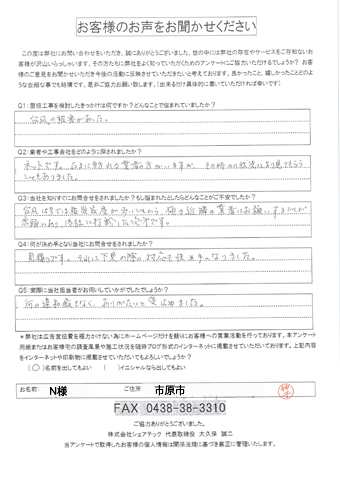 お客様のお声をお聞かせください
この度は弊社にお問い合わせをいただき、誠にありがとうございました。世の中には弊社の存在やサービスをご存知ないお
客様が沢山いらっしゃいます。その方たちに弊社をよく知っていただくためのアンケートにご協力いただけるでしょうか？お客
様のご意見をお聞かせいただき今後の活動に反映させていただきたいと考えております。良かったこと、嬉しかったことどのよ
うな些細な事でも結構です、是非ご協力お願い致します。（出来るだけ具体的に書いていただければ幸いです）
Q1：屋根工事を検討したきっかけは何ですか？どんなことで悩まれていましたか？
台風の被害があった。
Q2：業者や工事会社をどのように探されましたか？
ネットです。
こともありました。
Q3：当社を知りすぐにお問合せをされましたか？もし悩まれたとしたらどんなことがご不安でしたか？
Q4：何が決め手となり当社にお問合せをされましたか？
見積りです。それに下見の際の対応も決め手となりました。
Q5：実際に当社担当者がお伺いしていかがでしたでしょうか？
何の違和感もなく、ありがたいと
＊弊社は広告宣伝費を極力かけない為にホームページだけを頼りにお客様への営業活動を行っております。本アンケート
用紙またはお客様宅の調査風景や施工状況を随時ブログ形式のインターネットに掲載させていただいております。上記内容
をインターネットや印刷物に掲載させていただいてもよろしいでしょうか？
（○）名前を出してもよい （ ）イニシャルなら出してもよい
お名前： N様 ご住所： 市原市
FAX 0438-38-3310
ご協力ありがとうございました。
株式会社シェアテック 代表取締役 大久保 誠二
当アンケートで取得したお客様の個人情報は関係法規に基づき厳正に管理いたします。